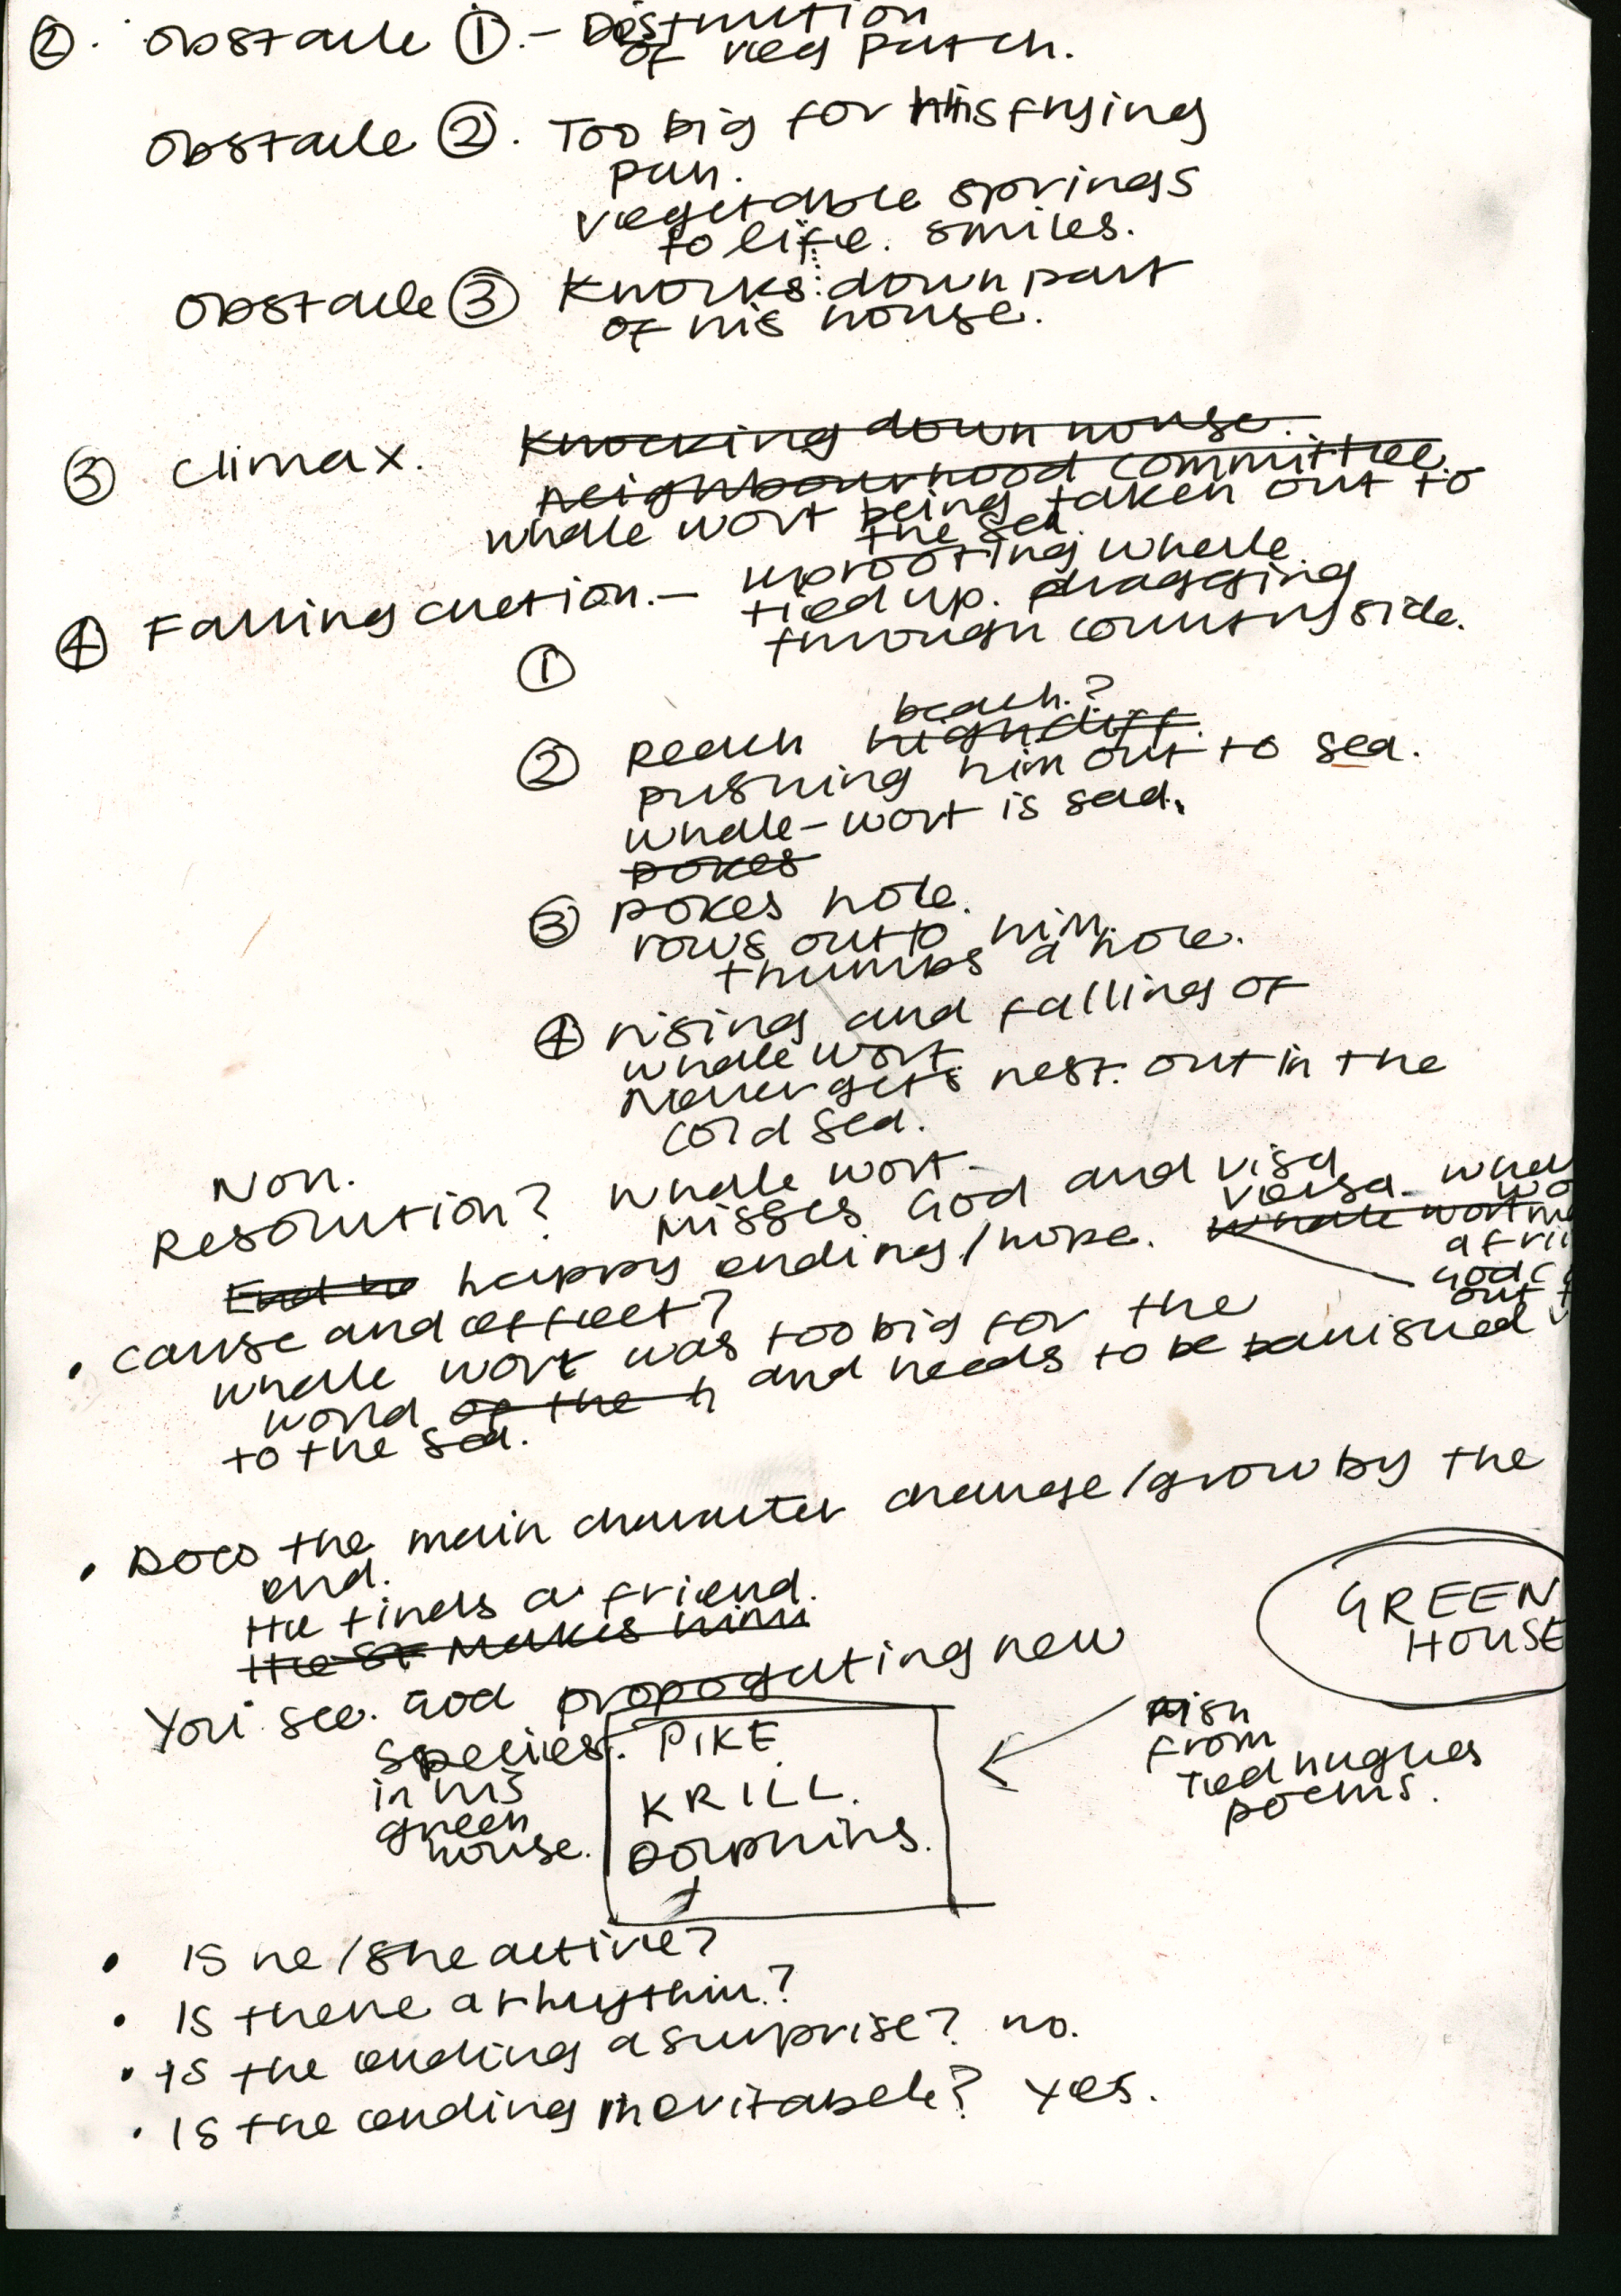 ②. obstacle ①.- Distruction
of veg patch.
obstacle ②. Too big for his frying
pan.
vegetable springs
to life. smiles.
obstacle ③ Knocks down part
of his house.
③ climax. Knocking down house.
neighbourhood committee
whale wort being taken out to
the sea
④ Falling action.- uprooting whale.
tied up. dragging
through countryside.
①
beach.?
② Reach high cliff.
pushing him out to sea.
whale-wort is sad.
pokes
③ pokes hole.
rows out to him
thumbs a hole.
④ rising and falling of
whale wort.
Never gets rest. out in the
cold sea.
Non.
Resolution? whale wort.
misses God and visa
versa.
End happy ending/hope. whale wort
God
out
• cause and effect?
whale wort was too big for the
world of the h and needs to be banished
to the sea.
• Does the main character change/grow by the
end.
He finds a friend.
Makes him
GREEN
HOUSE
You see. God propogating new
species. PIKE
in his
green
house.
KRILL.
Dolphins.
Fish
from
Ted hughes
poems.
• Is he/she active?
• Is there a rhythim?
• Is the ending a surprise? no.
• Is the ending inevitabele? Yes.